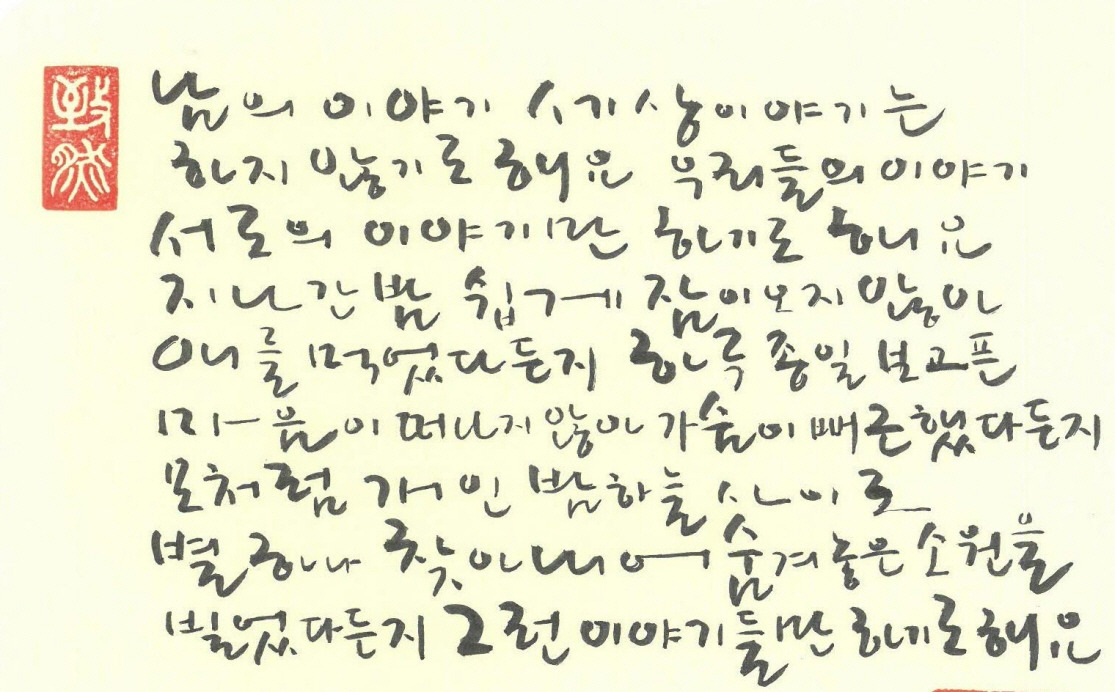 남의 이야기 이야기는
하지 않기로 해요 우리들의 이야기
서로의 이야기만 하기로 해요
지나간 밤 쉽게 잠이 오지 않아
애를 먹었다든지 하루 종일 보고픈
마음이 떠나지 않아 가슴이 뻐근했다든지
모처럼 개인 밤하늘 사이로
별 하나 찾아내어 숨겨놓은 소원을
빌었다든지 그런 이야기들만 하기로 해요